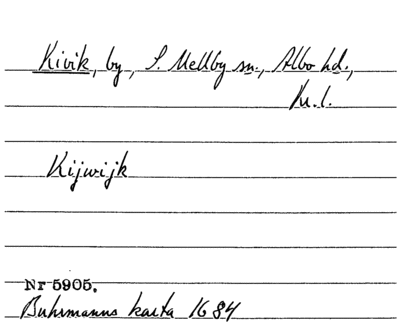 Kivik, by, S. Mellby sn., Albo hd.,
M. l.
Kijwijk
Nr 5905.
Buhrmanns karta 1684